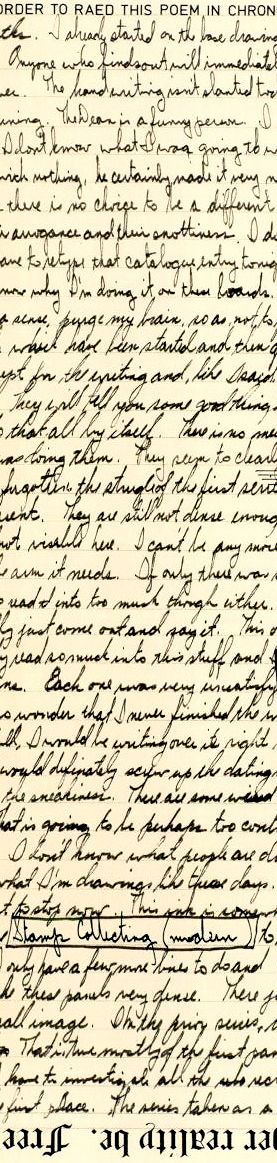 ORDER TO RAED THIS POEM IN CHRON
ths. I already started on the base drawing
Anyone who finds out will immediatel
er. The handwriting isn't slanted to
ning. The Dean is a funny person. I
I don't know what I was going to w
wich nothing, he certainly made it very n
there is no choice to be a different
arrogance and their snottiness. I d
ave to retype that catalogue entry tonig
now why I'm doing it on these boards.
a sense, purge my brain, so as not to
which have been started and then
ept for the writing and, like I said
they will tell you some good things
that all by itself. There is no me
was doing them. They seem to clearl
forgotten the struggle of the first seri
sent. They are still not dense enoug
not visible here. I can't be any mo
e arm it needs. If only there was
o read it into too much though either.
ly just come out and say it. This
y read so much into this stuff and
ne. Each one was very uncertain
o wonder that I never finished the
ll, I would be writing over it right
would definately screw up the dating
the sneakiness. There are some weird
hat is going to be perhaps too cont
I don't know what people are d
what I'm drawings like these days.
t to stop now. This ink is
Stamp Collecting (modern) t
only have a few more lines to do and
ke these panels very dense. There
all image. On the prior series,
That is true mostly of the first pan
have to investigate all the
first place. The series taken as a
er reality be. Free